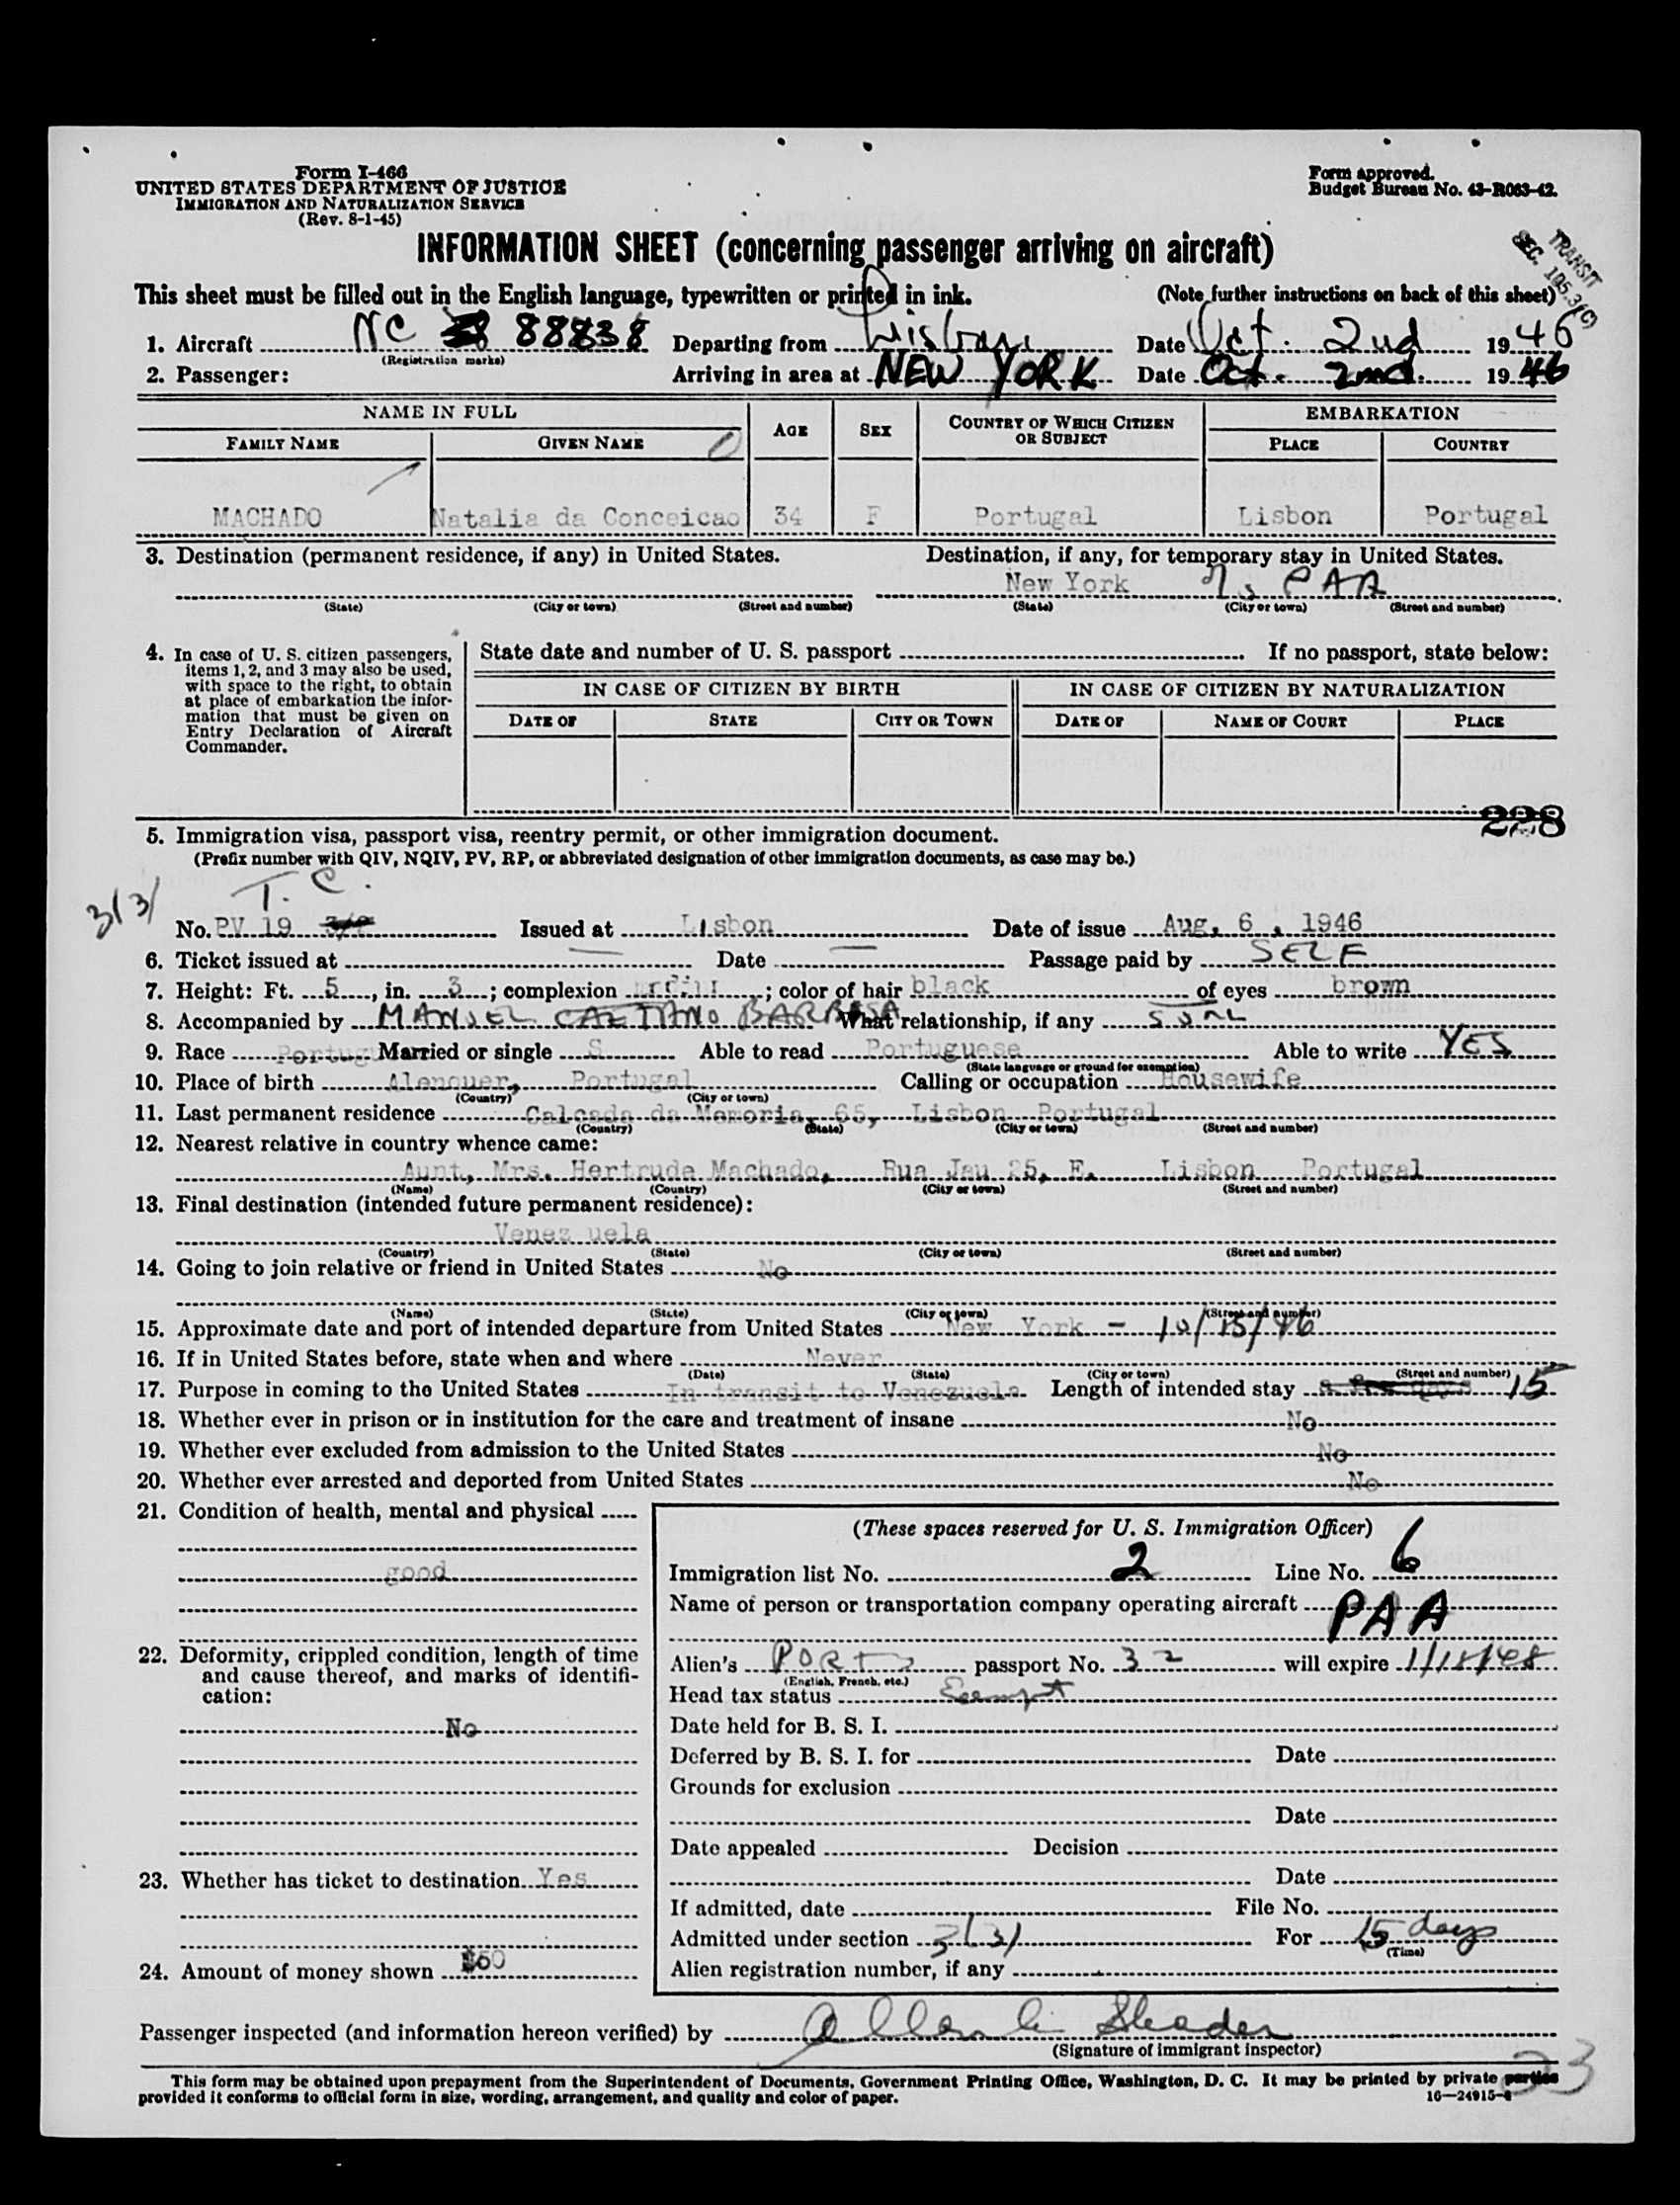 Form I-466
UNITED STATES DEPARTMENT OF JUSTICE
IMMIGRATION AND NATURALIZATION SERVICE
(Rev. 8-1-45)
Form approved.
Budget Bureau No. 43-R063-42.
INFORMATION SHEET (concerning passenger arriving on aircraft)
TRANSIT
SEC. 195.3(C)
This sheet must be filled out in the English language, typewritten or printed in ink. (Note further instructions on back of this sheet)
1. Aircraft NC 88838 Departing from Lisbon Date Oct. 2nd 1946
(Registration marks)
2. Passenger: Arriving in area at NEW YORK Date Oct. 2nd. 1946
NAME IN FULL AGE SEX COUNTRY OF WHICH CITIZEN OR SUBJECT EMBARKATION
FAMILY NAME GIVEN NAME PLACE COUNTRY
MACHADO Natalia da Conceicao 34 F Portugal Lisbon Portugal
3. Destination (permanent residence, if any) in United States. Destination, if any, for temporary stay in United States.
New York % PAA
(State) (City or town) (Street and number) (State) (City or town) (Street and number)
4. In case of U. S. citizen passengers, items 1, 2, and 3 may also be used, with space to the right, to obtain at place of embarkation the information that must be given on Entry Declaration of Aircraft Commander.
State date and number of U. S. passport If no passport, state below:
IN CASE OF CITIZEN BY BIRTH IN CASE OF CITIZEN BY NATURALIZATION
DATE OF STATE CITY OR TOWN DATE OF NAME OF COURT PLACE
228
5. Immigration visa, passport visa, reentry permit, or other immigration document.
(Prefix number with QIV, NQIV, PV, RP, or abbreviated designation of other immigration documents, as case may be.)
T. C.
3(3)
No. PV 19 Issued at Lisbon Date of issue Aug. 6, 1946
6. Ticket issued at — Date — Passage paid by SELF
7. Height: Ft. 5, in. 3; complexion ; color of hair black of eyes brown
8. Accompanied by MANUEL CAETANO BARBOSA What relationship, if any
9. Race Portug Married or single S Able to read Portuguese Able to write YES
(State language or ground for exemption)
10. Place of birth Alenquer, Portugal Calling or occupation Housewife
(Country) (City or town)
11. Last permanent residence Calcada da Memoria, 65, Lisbon Portugal
(Country) (State) (City or town) (Street and number)
12. Nearest relative in country whence came:
Aunt, Mrs. Hertrude Machado, Rua Jau 25, E. Lisbon Portugal
(Name) (Country) (City or town) (Street and number)
13. Final destination (intended future permanent residence):
Venezuela
(Country) (State) (City or town) (Street and number)
14. Going to join relative or friend in United States No
(Name) (State) (City or town) (Street and number)
15. Approximate date and port of intended departure from United States New York - 10/15/46
16. If in United States before, state when and where Never
(Date) (State) (City or town) (Street and number)
17. Purpose in coming to the United States In transit to Venezuela Length of intended stay 15
18. Whether ever in prison or in institution for the care and treatment of insane No
19. Whether ever excluded from admission to the United States No
20. Whether ever arrested and deported from United States No
21. Condition of health, mental and physical
good
22. Deformity, crippled condition, length of time and cause thereof, and marks of identification:
No
23. Whether has ticket to destination Yes
24. Amount of money shown $50
(These spaces reserved for U. S. Immigration Officer)
Immigration list No. 2 Line No. 6
Name of person or transportation company operating aircraft PAA
Alien's PORT passport No. 32 will expire 1/18/48
(English, French, etc.)
Head tax status Exempt
Date held for B. S. I.
Deferred by B. S. I. for Date
Grounds for exclusion
Date
Date appealed Decision
Date
If admitted, date File No.
Admitted under section 3(3) For 15 days
(Time)
Alien registration number, if any
Passenger inspected (and information hereon verified) by
(Signature of immigrant inspector)
23
This form may be obtained upon prepayment from the Superintendent of Documents, Government Printing Office, Washington, D. C. It may be printed by private parties
provided it conforms to official form in size, wording, arrangement, and quality and color of paper. 16—24915-2